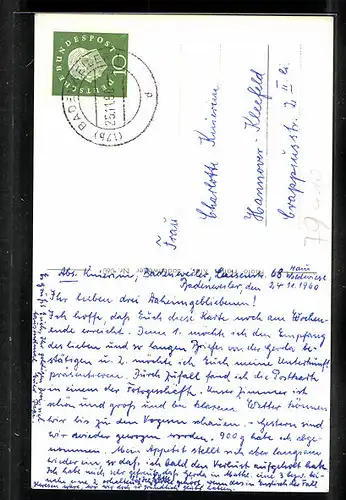 DEUTSCHE BUNDESPOST
10
(17b) BADENWEILER
25.11.
Frau
Charlotte Knierim
Hannover-Kleefeld
Crappiusstr. 2 II li.
79
Abs. Knierim, Badenweiler, 68 Haus
Badenweiler, den 24.11.1960
Ihr lieben drei Daheimgebliebenen!
Ich hoffe, daß Euch diese Karte noch am Wochen-
ende erreicht. Denn 1. möchte ich den Empfang
des lieben und so langen Briefes von der Gerda be-
stätigen u. 2. möchte ich Euch meine Unterkunft
präsentieren. Durch Zufall fand ich die Postkarte
in einem der Fotogeschäfte. Unser Zimmer ist
schön und groß und bei klarem Wetter können
wir bis zu den Vogesen schauen. – Gestern sind
wir wieder gewogen worden. 900 g habe ich abge-
nommen. Mein Appetit stellt sich aber langsam
wieder ein, so daß ich bald den Verlust aufgeholt habe.
Ich habe mich sehr gefreut, daß Gerda in Mathe eine 3 bzw.
eine 2 geschrieben hat, wenn das in Englisch der Fall